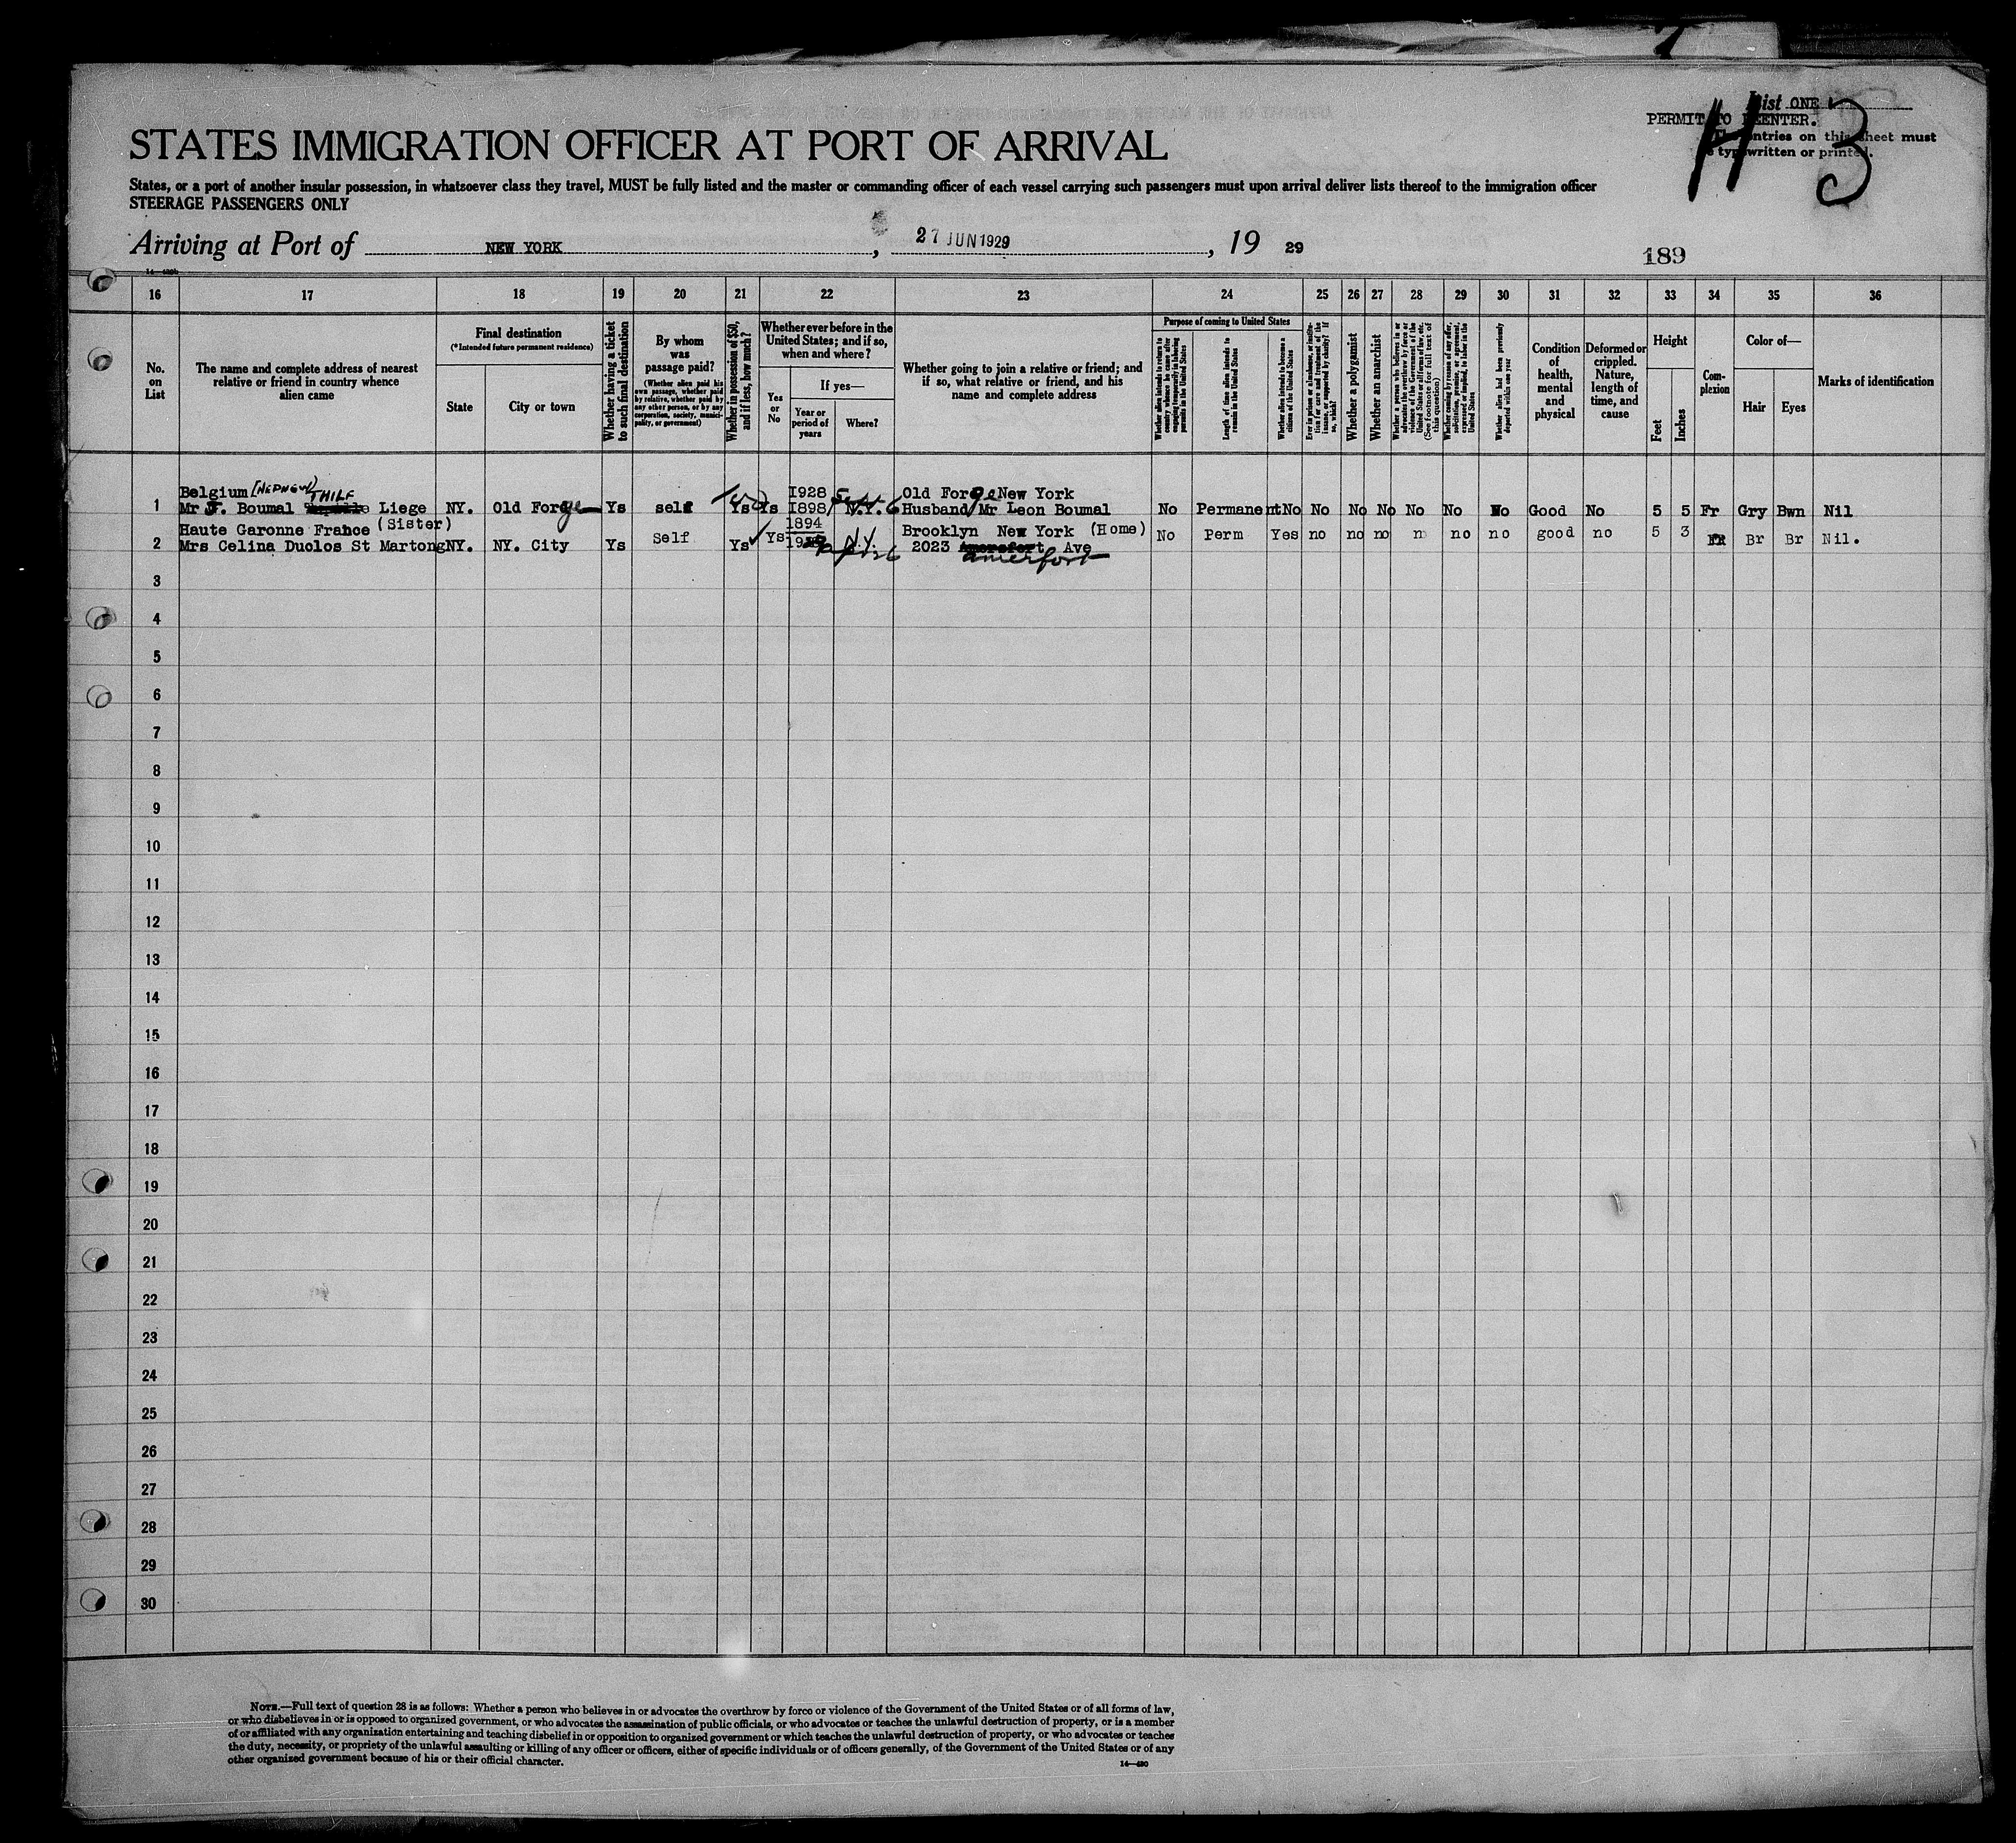 List ONE
PERMIT TO REENTER.
The entries on this sheet must
be typewritten or printed.
H 3
STATES IMMIGRATION OFFICER AT PORT OF ARRIVAL
States, or a port of another insular possession, in whatsoever class they travel, MUST be fully listed and the master or commanding officer of each vessel carrying such passengers must upon arrival deliver lists thereof to the immigration officer
STEERAGE PASSENGERS ONLY
Arriving at Port of NEW YORK, 27 JUN 1929, 19 29
189
16 17 18 19 20 21 22 23 24 25 26 27 28 29 30 31 32 33 34 35 36
No. on List
The name and complete address of nearest relative or friend in country whence alien came
Final destination
(*Intended future permanent residence)
State
City or town
Whether having a ticket to such final destination
By whom was passage paid?
(Whether alien paid his own passage, whether paid by relative, whether paid by any other person, or by any corporation, society, municipality, or government)
Whether in possession of $50, and if less, how much?
Whether ever before in the United States; and if so, when and where?
Yes or No
If yes—
Year or period of years
Where?
Whether going to join a relative or friend; and if so, what relative or friend, and his name and complete address
Purpose of coming to United States
Whether alien intends to return to country whence he came after engaging temporarily in laboring pursuits in the United States
Length of time alien intends to remain in the United States
Whether alien intends to become a citizen of the United States
Ever in prison or almshouse, or institution for care and treatment of the insane, or supported by charity? If so, which?
Whether a polygamist
Whether an anarchist
Whether a person who believes in or advocates the overthrow by force or violence of the Government of the United States or all forms of law, etc. (See footnote for full text of this question)
Whether coming by reason of any offer, solicitation, promise, or agreement, expressed or implied, to labor in the United States
Whether alien had been previously deported within one year
Condition of health, mental and physical
Deformed or crippled. Nature, length of time, and cause
Height
Feet
Inches
Complexion
Color of—
Hair
Eyes
Marks of identification
Belgium [NEPHEW) THILF 1928 Sept Old Forge New York
1 Mr J. Boumal Liege NY. Old Forge Ys self Ys Ys 1898 N.Y. Husband Mr Leon Boumal No Permanent No No No No No No No Good No 5 5 Fr Gry Bwn Nil
Haute Garonne France (Sister) 1894 Brooklyn New York (Home)
2 Mrs Celina Duclos St Martong NY. NY. City Ys Self Ys Ys N.Y. 2023 Amersfort Ave No Perm Yes no no no n no no good no 5 3 FR Br Br Nil.
Amerfort
3
4
5
6
7
8
9
10
11
12
13
14
15
16
17
18
19
20
21
22
23
24
25
26
27
28
29
30
NOTE.—Full text of question 28 is as follows: Whether a person who believes in or advocates the overthrow by force or violence of the Government of the United States or of all forms of law,
or who disbelieves in or is opposed to organized government, or who advocates the assassination of public officials, or who advocates or teaches the unlawful destruction of property, or is a member
of or affiliated with any organization entertaining and teaching disbelief in or opposition to organized government or which teaches the unlawful destruction of property, or who advocates or teaches
the duty, necessity, or propriety of the unlawful assaulting or killing of any officer or officers, either of specific individuals or of officers generally, of the Government of the United States or of any
other organized government because of his or their official character.
14—430